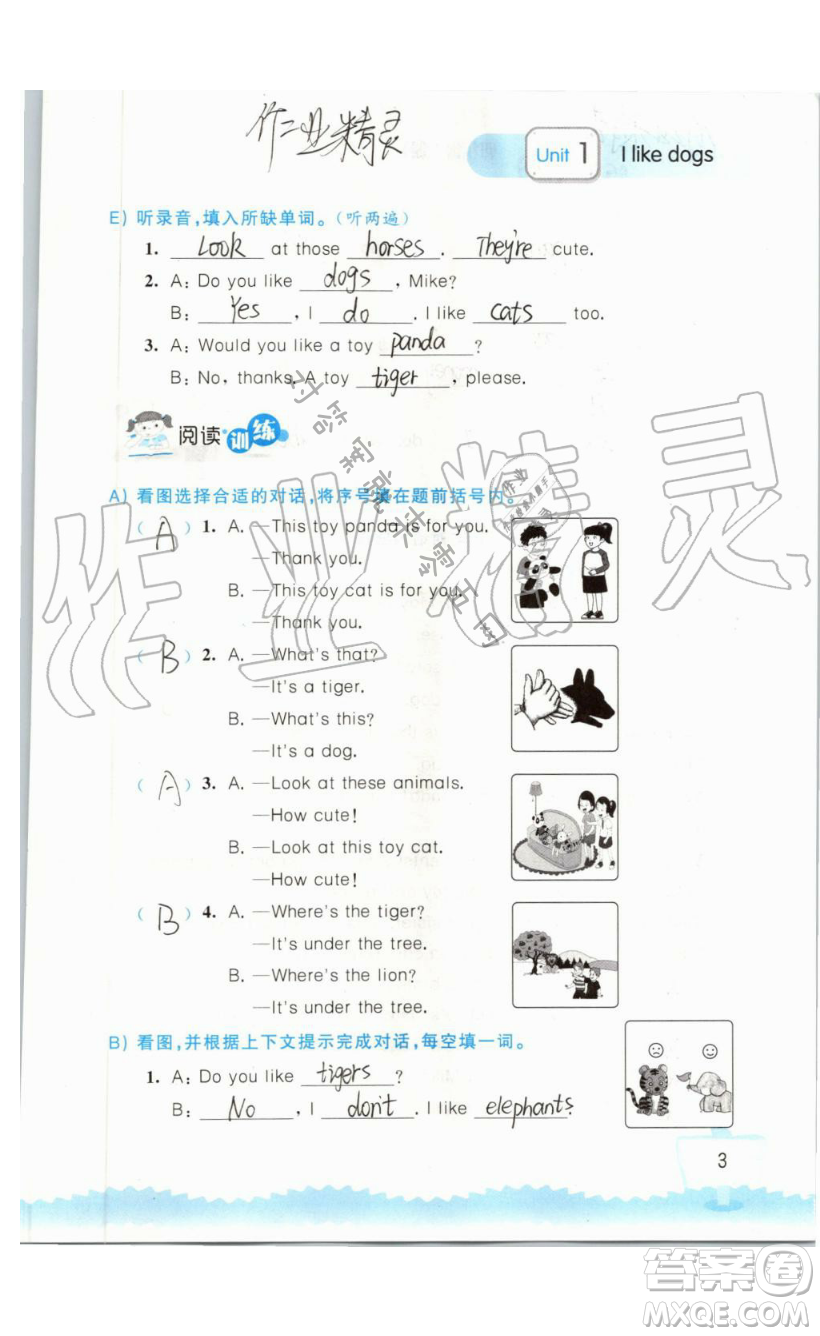 作业精灵
Unit 1 I like dogs
E) 听录音,填入所缺单词。(听两遍)
1. Look at those horses. They're cute.
2. A: Do you like dogs, Mike?
B: Yes, I do. I like cats too.
3. A: Would you like a toy panda?
B: No, thanks. A toy tiger, please.
阅读训练
A) 看图选择合适的对话,将序号填在题前括号内。
( A ) 1. A. —This toy panda is for you.
—Thank you.
B. —This toy cat is for you.
—Thank you.
( B ) 2. A. —What's that?
—It's a tiger.
B. —What's this?
—It's a dog.
( A ) 3. A. —Look at these animals.
—How cute!
B. —Look at this toy cat.
—How cute!
( B ) 4. A. —Where's the tiger?
—It's under the tree.
B. —Where's the lion?
—It's under the tree.
B) 看图,并根据上下文提示完成对话,每空填一词。
1. A: Do you like tigers?
B: No, I don't. I like elephants.
3
作业精灵
对答案就来零五网
答案圈
MXQE.COM